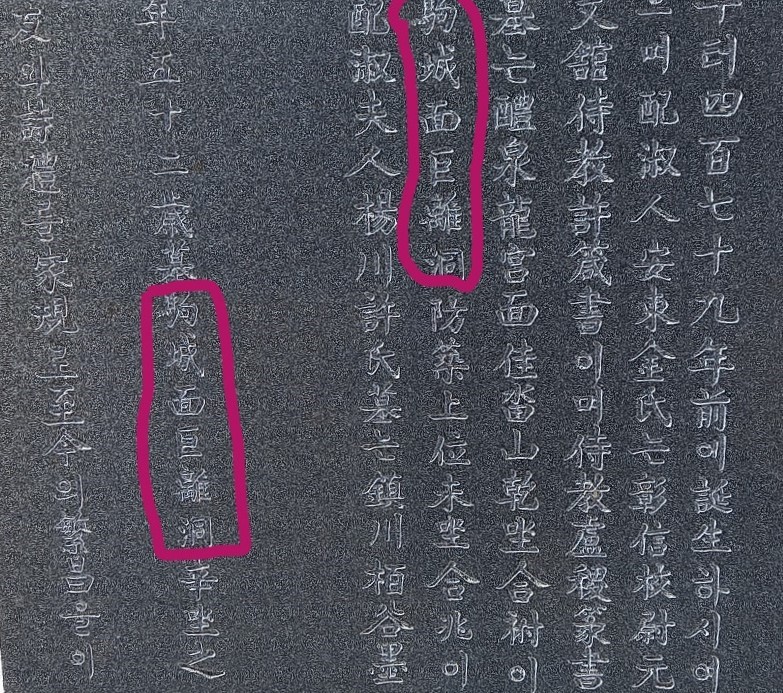 터四百七十九年前에誕生하시여
으며配淑人安東金氏는彰信校尉元
文舘侍教許箴書이며侍教盧稷篆書
墓는醴泉龍宮面佳畓山乾坐合祔이
駒城面巨離洞防築上位未坐合兆이
配淑夫人楊川許氏墓는鎭川栢谷墨
年五十二歲墓駒城面巨離洞辛坐之
友의詩禮를家現로至今의繁昌을이